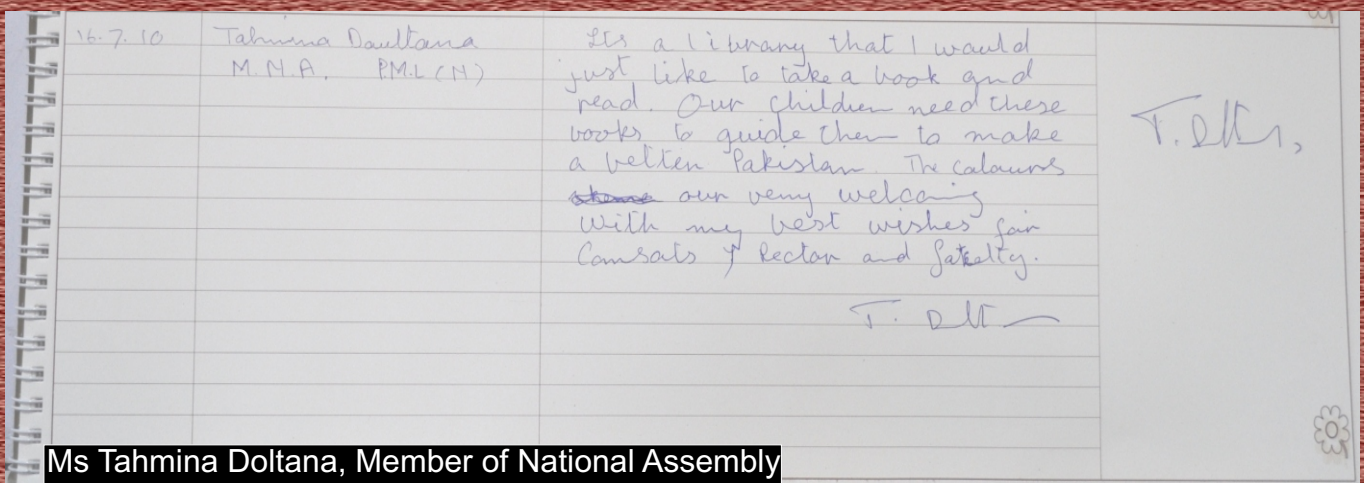 16.7.10
Tahmina Daultana
M.N.A. P.M.L (N)
Its a library that I would
just like to take a book and
read. Our children need these
books to guide them to make
a better Pakistan. The colours
our very welcoming
With my best wishes for
Comsats Rector and fakelty.
T.
T.
Ms Tahmina Doltana, Member of National Assembly